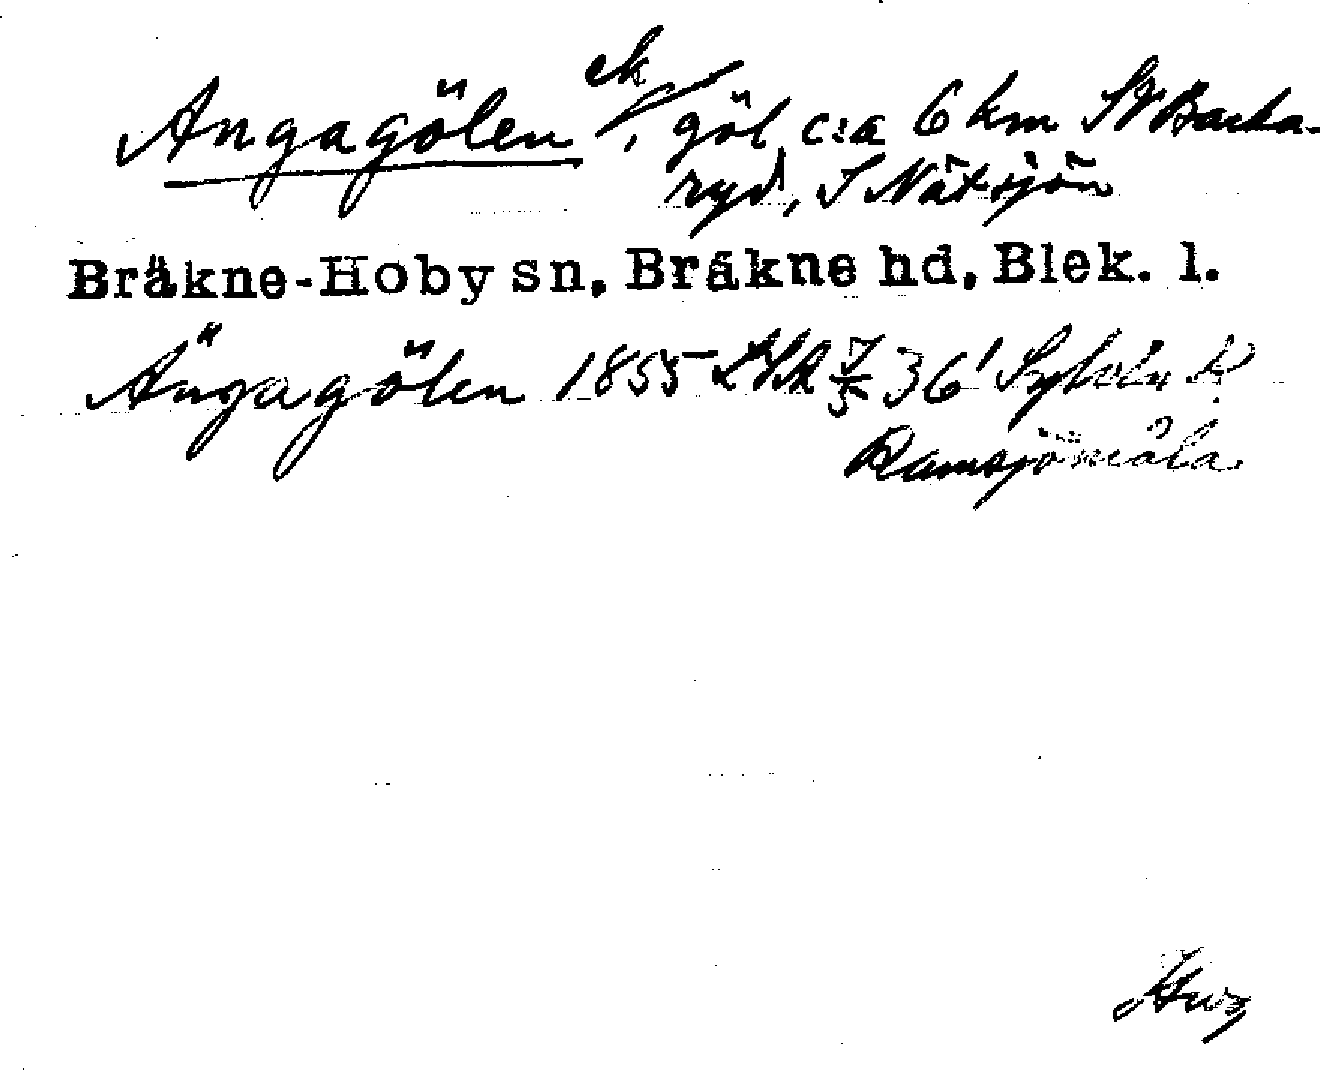 Angagölen ek /, göl c:a 6 km SV Backa-
ryd, S Nätsjön
Bräkne-Hoby sn, Bräkne hd, Blek. l.
Ängagölen 1855 LSA 7/5 36'
Ramsjömåla